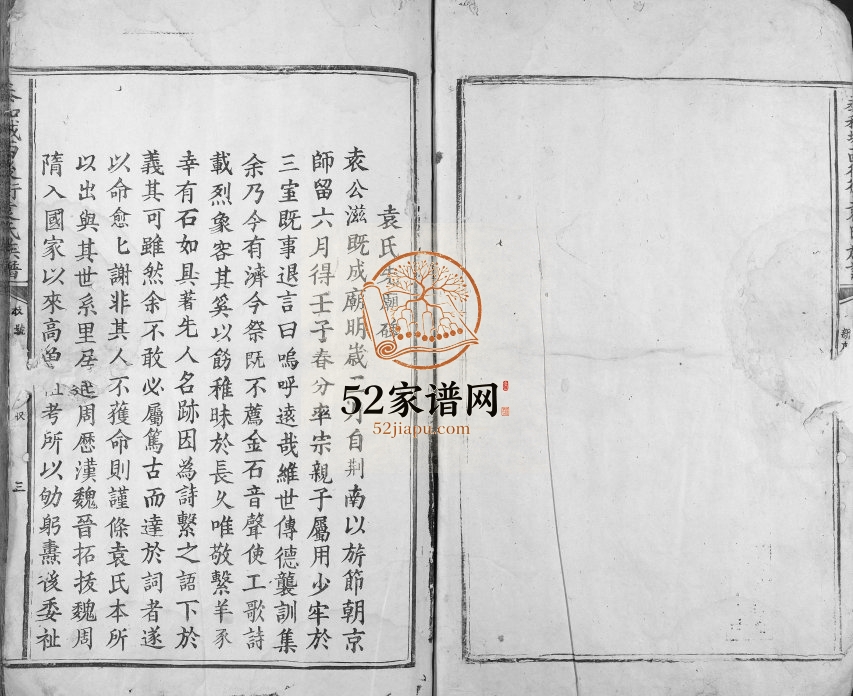 袁氏廟碑
袁公滋既成廟明歲自荊南以旂節朝京
師留六月得壬子春分率宗親子屬用少牢於
三室既事退言曰嗚呼遠哉維世傳德襲訓集
余乃今有濟今祭既不薦金石音聲使工歌詩
載烈象容其奚以飭稚昧於長久唯敬繫羊豕
幸有石如具著先人名跡因為詩繫之語下於
義其可雖然余不敢必屬篤古而達於詞者遂
以命愈匕謝非其人不獲命則謹條袁氏本所
以出與其世系里居周歷漢魏晉拓拔魏周
隋入國家以來高考所以劬躬燾後委祉
袁氏族譜
三
52家谱网
52jiapu.com